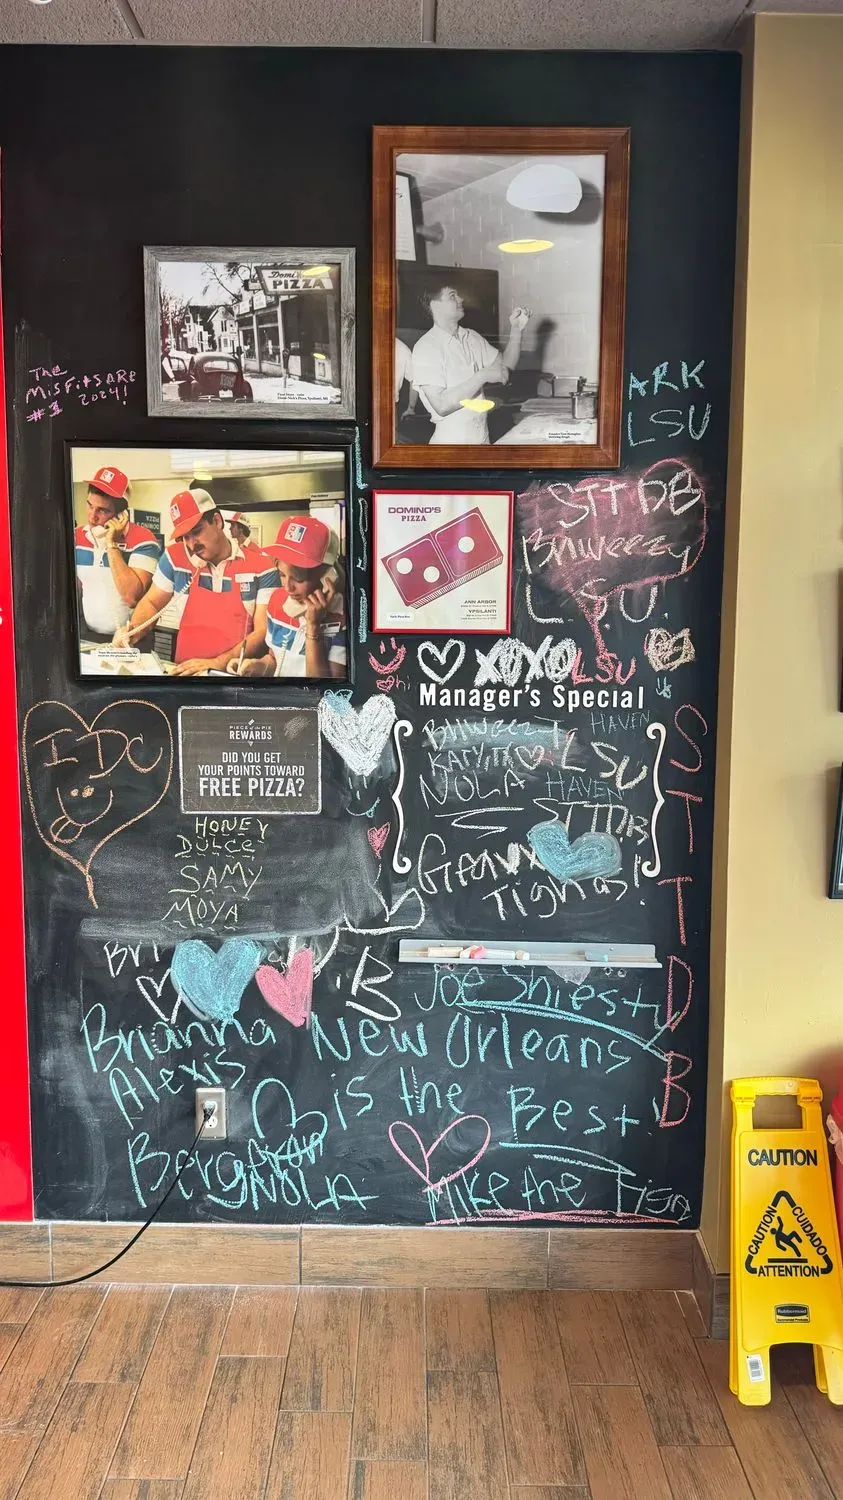 Domi
PIZZA
The
MisFitsARE
#1 2024!
ARK
LSU
DOMINO'S
PIZZA
ANN ARBOR
YPSILANTI
STTDB
Bhweezy
L.S.U.
XOXO LSU
hi
Manager's Special
HAVEN
LSU
NOLA HAVEN
STTDB
Geaux
Tighas!
STTDB
IDC
PIECE of the PIE
REWARDS
DID YOU GET
YOUR POINTS TOWARD
FREE PIZZA?
HONEY
DULCE
SAMY
MOYA
Bri
B
Joe Shiesty
Brianna
Alexis
New Orleans
is the Best!
NOLA
Mike the
CAUTION
CAUTION
CUIDADO
ATTENTION
Rubbermaid